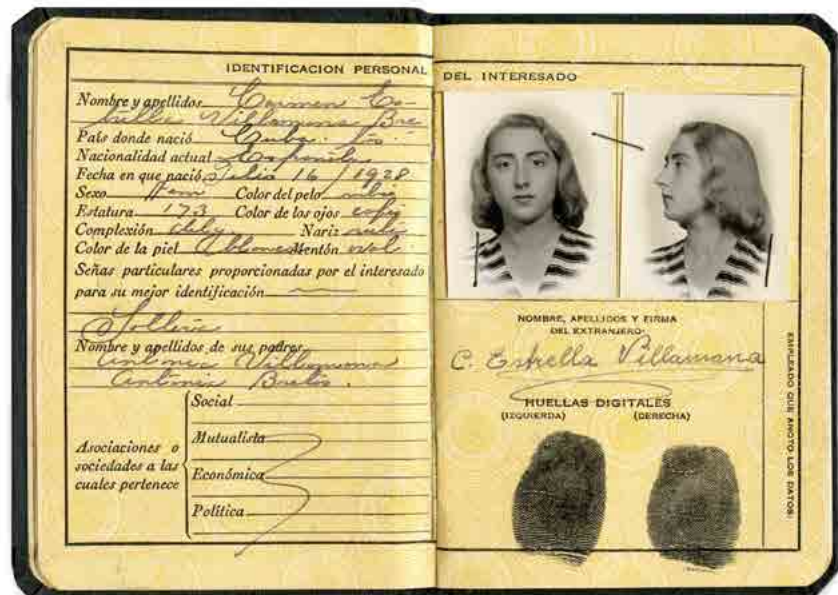 IDENTIFICACION PERSONAL
Nombre y apellidos Carmen Es-
trella Villamana Bre
País donde nació Cuba
Nacionalidad actual Española
Fecha en que nació Julio 16/1928
Sexo Fem Color del pelo rubio
Estatura 173 Color de los ojos
Complexión Nariz
Color de la piel Mentón oval
Señas particulares proporcionadas por el interesado
para su mejor identificación
Soltera
Nombre y apellidos de sus padres
Antonio Villamana
Antonia
Asociaciones o
sociedades a las
cuales pertenece
Social
Mutualista
Económica
Política
DEL INTERESADO
NOMBRE, APELLIDOS Y FIRMA
DEL EXTRANJERO·
C. Estrella Villamana
HUELLAS DIGITALES
(IZQUIERDA) (DERECHA)
EMPLEADO QUE ANOTO LOS DATOS: